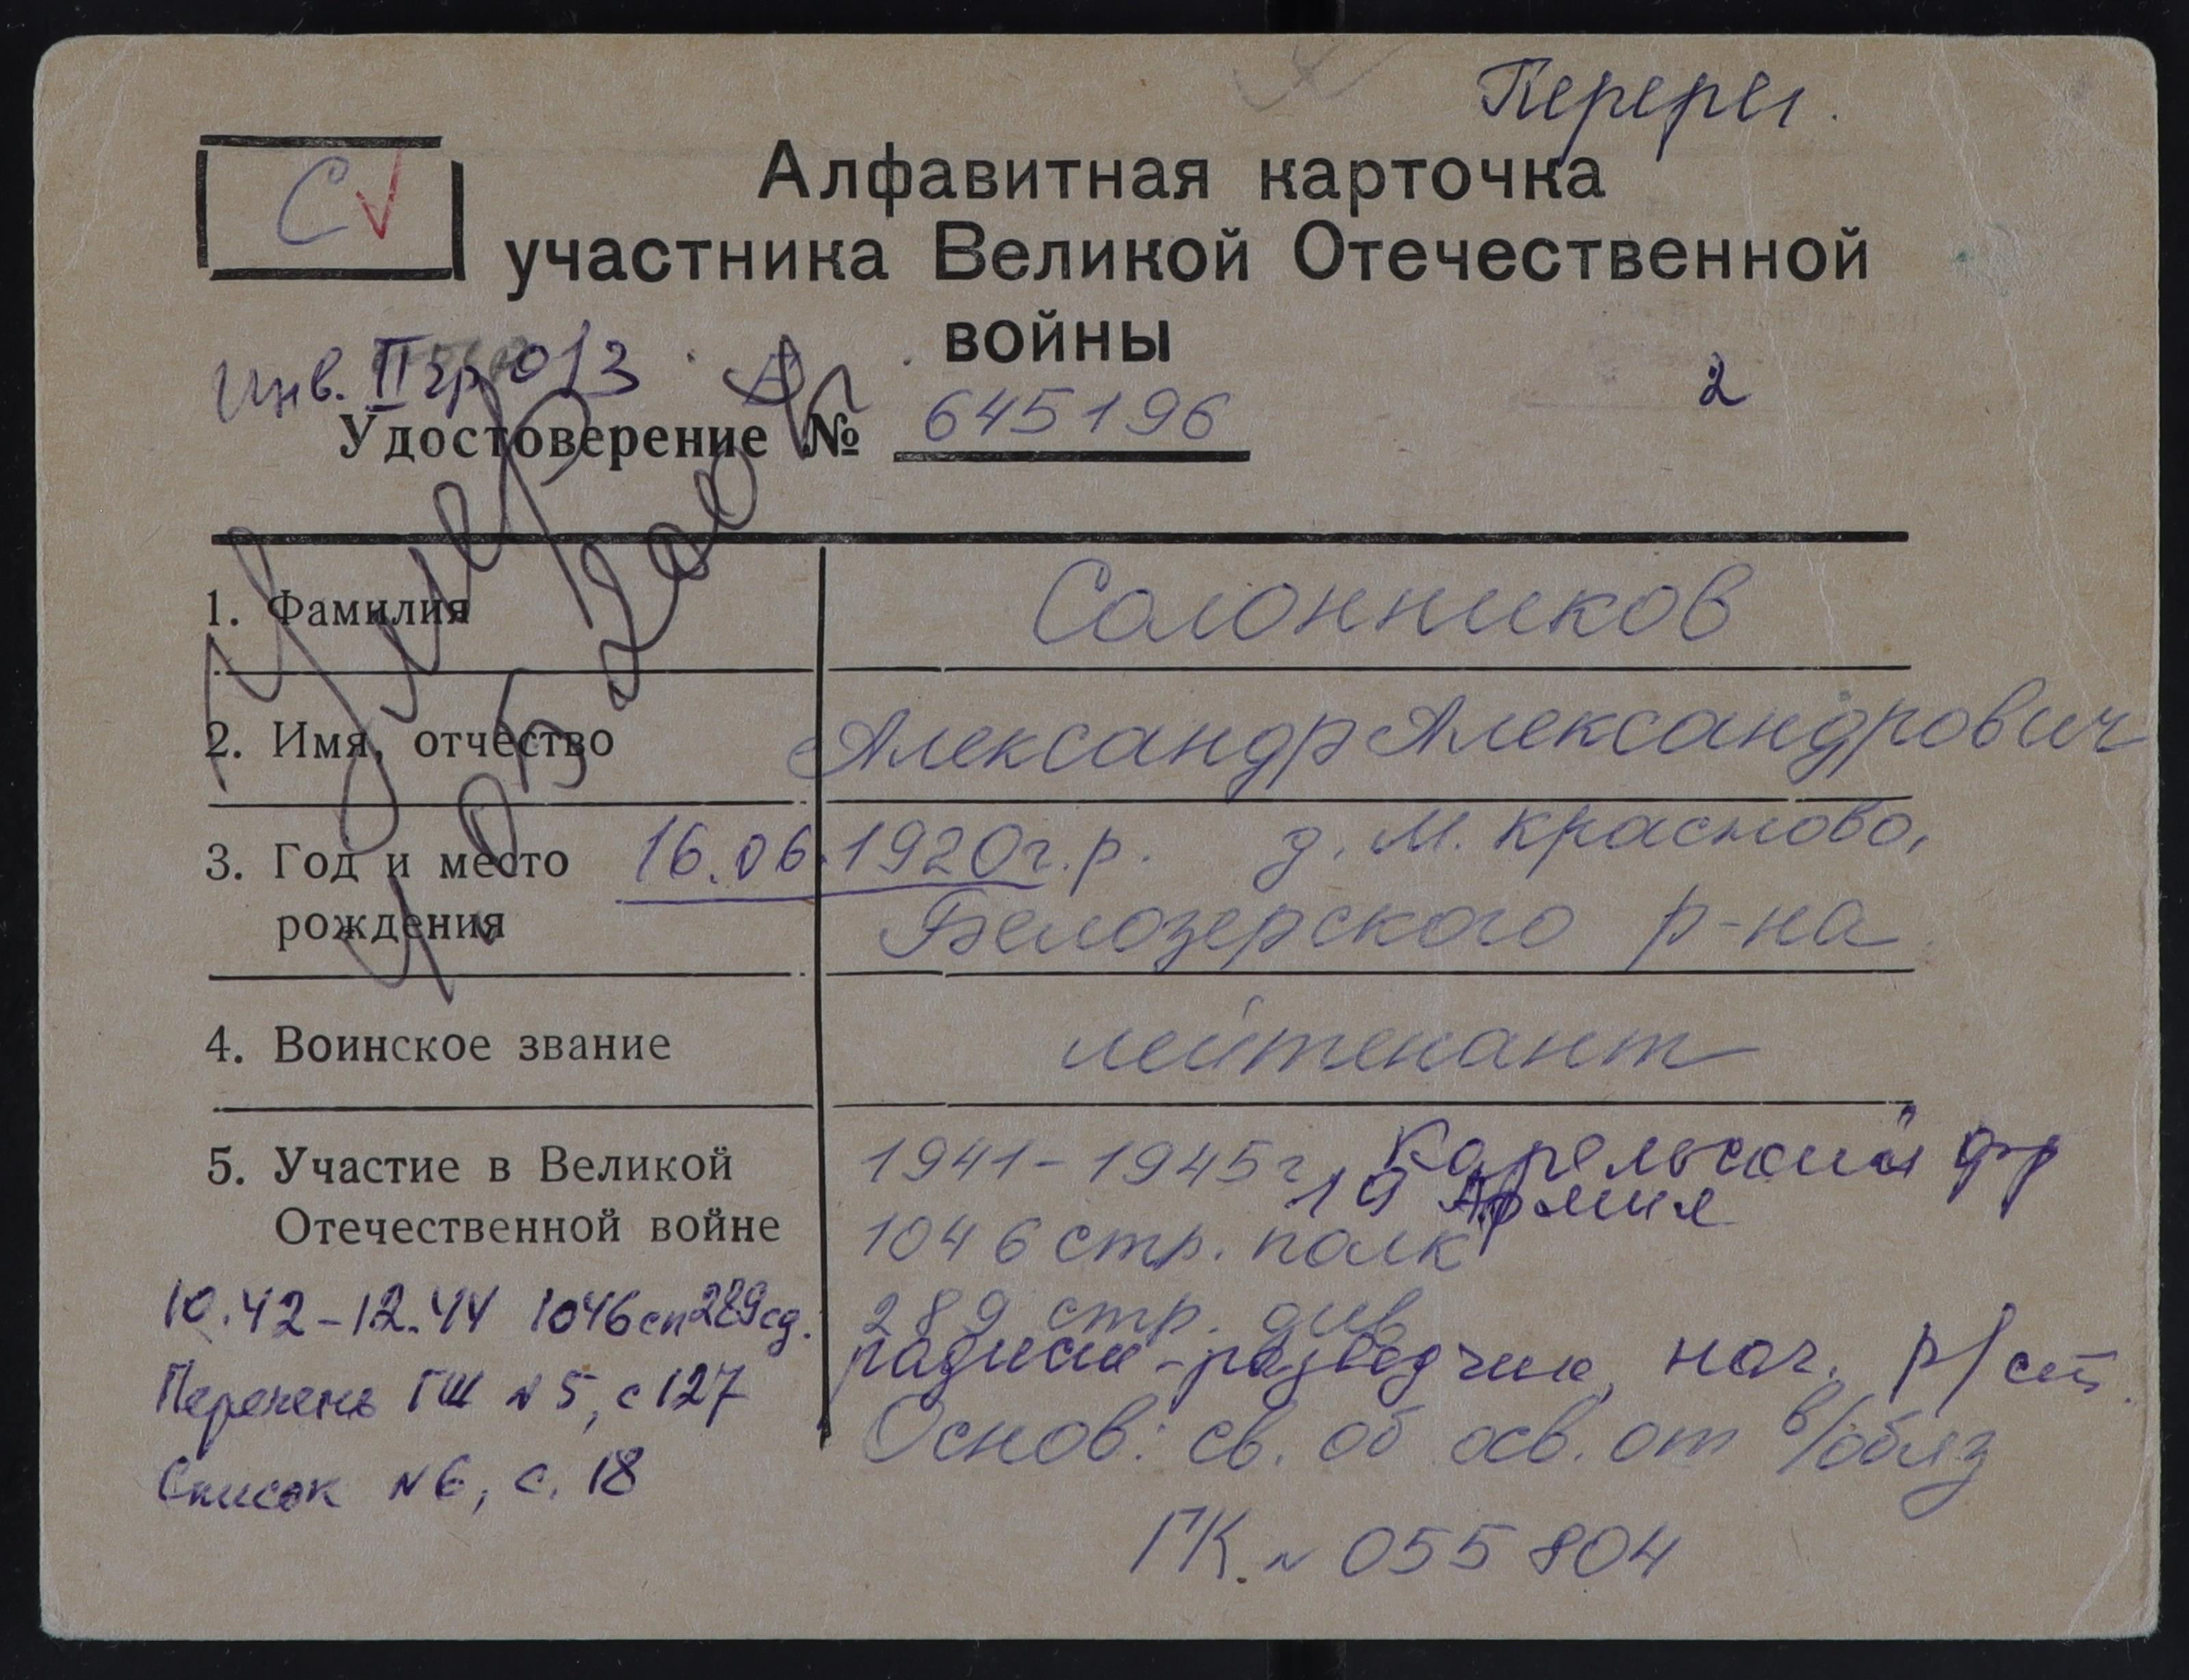 Перерег.
С
Алфавитная карточка
участника Великой Отечественной
войны
Инв. II гр о/з
2
Удостоверение № 645196
Умер
1. Фамилия Солонников
2. Имя, отчество Александр Александрович
3. Год и место рождения 16.06.1920г.р. д. М. Красново,
Белозерского р-на
4. Воинское звание лейтенант
5. Участие в Великой Отечественной войне 1941-1945г Карельский фр
19 Армия
1046 стр. полк
289 стр. див
радист-разведчик, нач. р/ст.
Основ: св. об осв. от в/обяз
ГК. № 055804
10.42-12.44 1046сп 289сд.
Перечень ГШ №5, с 127
Список №6, с. 18